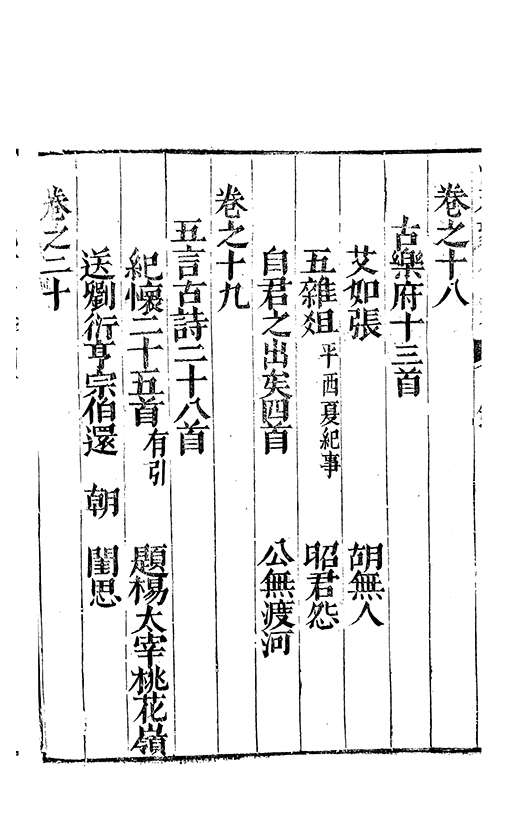 卷之十八
古樂府十三首
艾如張 胡無人
五雜俎 平西夏紀事 昭君怨
自君之出矣四首 公無渡河
卷之十九
五言古詩二十八首
紀懷二十五首 有引 題楊太宰桃花嶺
送劉衍亨宗伯還 朝 閨思
卷之二十